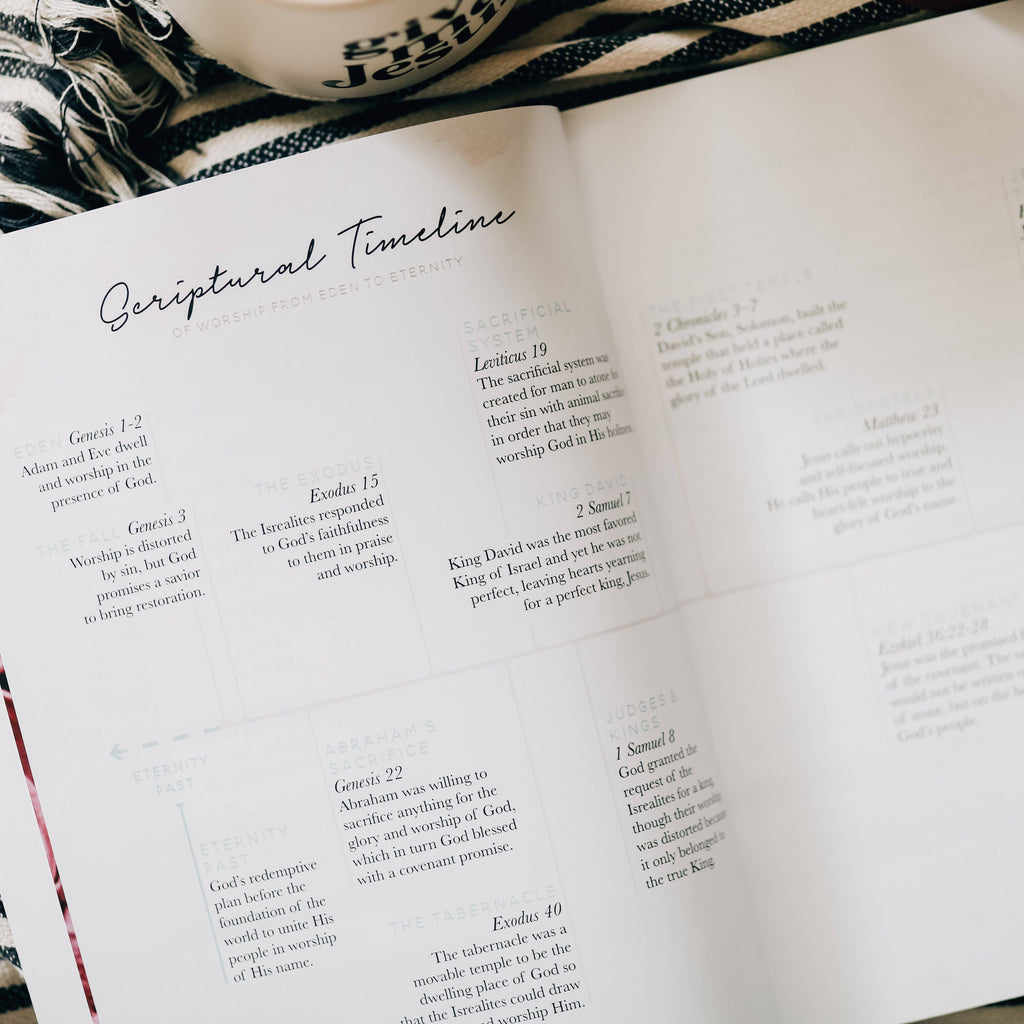 give
me
Jesus
Scriptural Timeline
OF WORSHIP FROM EDEN TO ETERNITY
EDEN Genesis 1-2
Adam and Eve dwell
and worship in the
presence of God.
THE FALL Genesis 3
Worship is distorted
by sin, but God
promises a savior
to bring restoration.
THE EXODUS
Exodus 15
The Isrealites responded
to God's faithfulness
to them in praise
and worship.
SACRIFICIAL
SYSTEM
Leviticus 19
The sacrificial system was
created for man to atone for
their sin with animal sacrifice
in order that they may
worship God in His holiness.
KING DAVID
2 Samuel 7
King David was the most favored
King of Israel and yet he was not
perfect, leaving hearts yearning
for a perfect king, Jesus.
ETERNITY
PAST
ETERNITY
PAST
God's redemptive
plan before the
foundation of the
world to unite His
people in worship
of His name.
ABRAHAM'S
SACRIFICE
Genesis 22
Abraham was willing to
sacrifice anything for the
glory and worship of God,
which in turn God blessed
with a covenant promise.
THE TABERNACLE
Exodus 40
The tabernacle was a
movable temple to be the
dwelling place of God so
that the Isrealites could draw
and worship Him.
JUDGES &
KINGS
1 Samuel 8
God granted the
request of the
Isrealites for a king
though their worship
was distorted because
it only belonged to
the true King.
THE FIRST TEMPLE
2 Chronicles 3-7
David's Son, Solomon, built the
temple that held a place called
the Holy of Holies where the
glory of the Lord dwelled.
THE GOSPELS
Matthew 23
Jesus calls out hypocrisy
and self-focused worship.
He calls His people to true and
heart-felt worship to the
glory of God's name.
NEW COVENANT
Ezekiel 36:22-28
Jesus was the promised
of the covenant. The
would not be written
of stone, but on the
God's people.